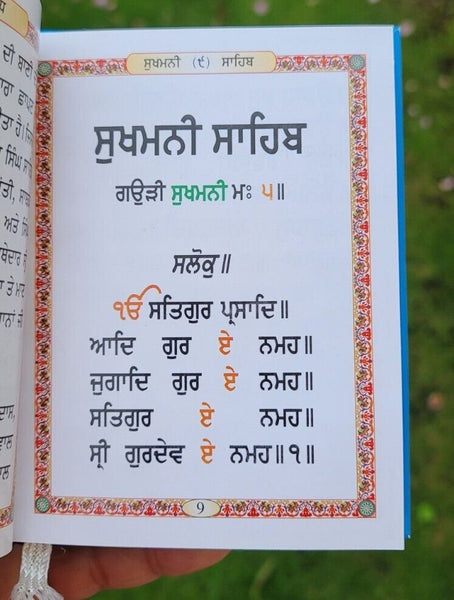 ਸੁਖਮਨੀ (੯) ਸਾਹਿਬ
ਸੁਖਮਨੀ ਸਾਹਿਬ
ਗਉੜੀ ਸੁਖਮਨੀ ਮਃ ੫॥
ਸਲੋਕੁ॥
ੴ ਸਤਿਗੁਰ ਪ੍ਰਸਾਦਿ॥
ਆਦਿ ਗੁਰ ਏ ਨਮਹ॥
ਜੁਗਾਦਿ ਗੁਰ ਏ ਨਮਹ॥
ਸਤਿਗੁਰ ਏ ਨਮਹ॥
ਸ੍ਰੀ ਗੁਰਦੇਵ ਏ ਨਮਹ॥੧॥
9